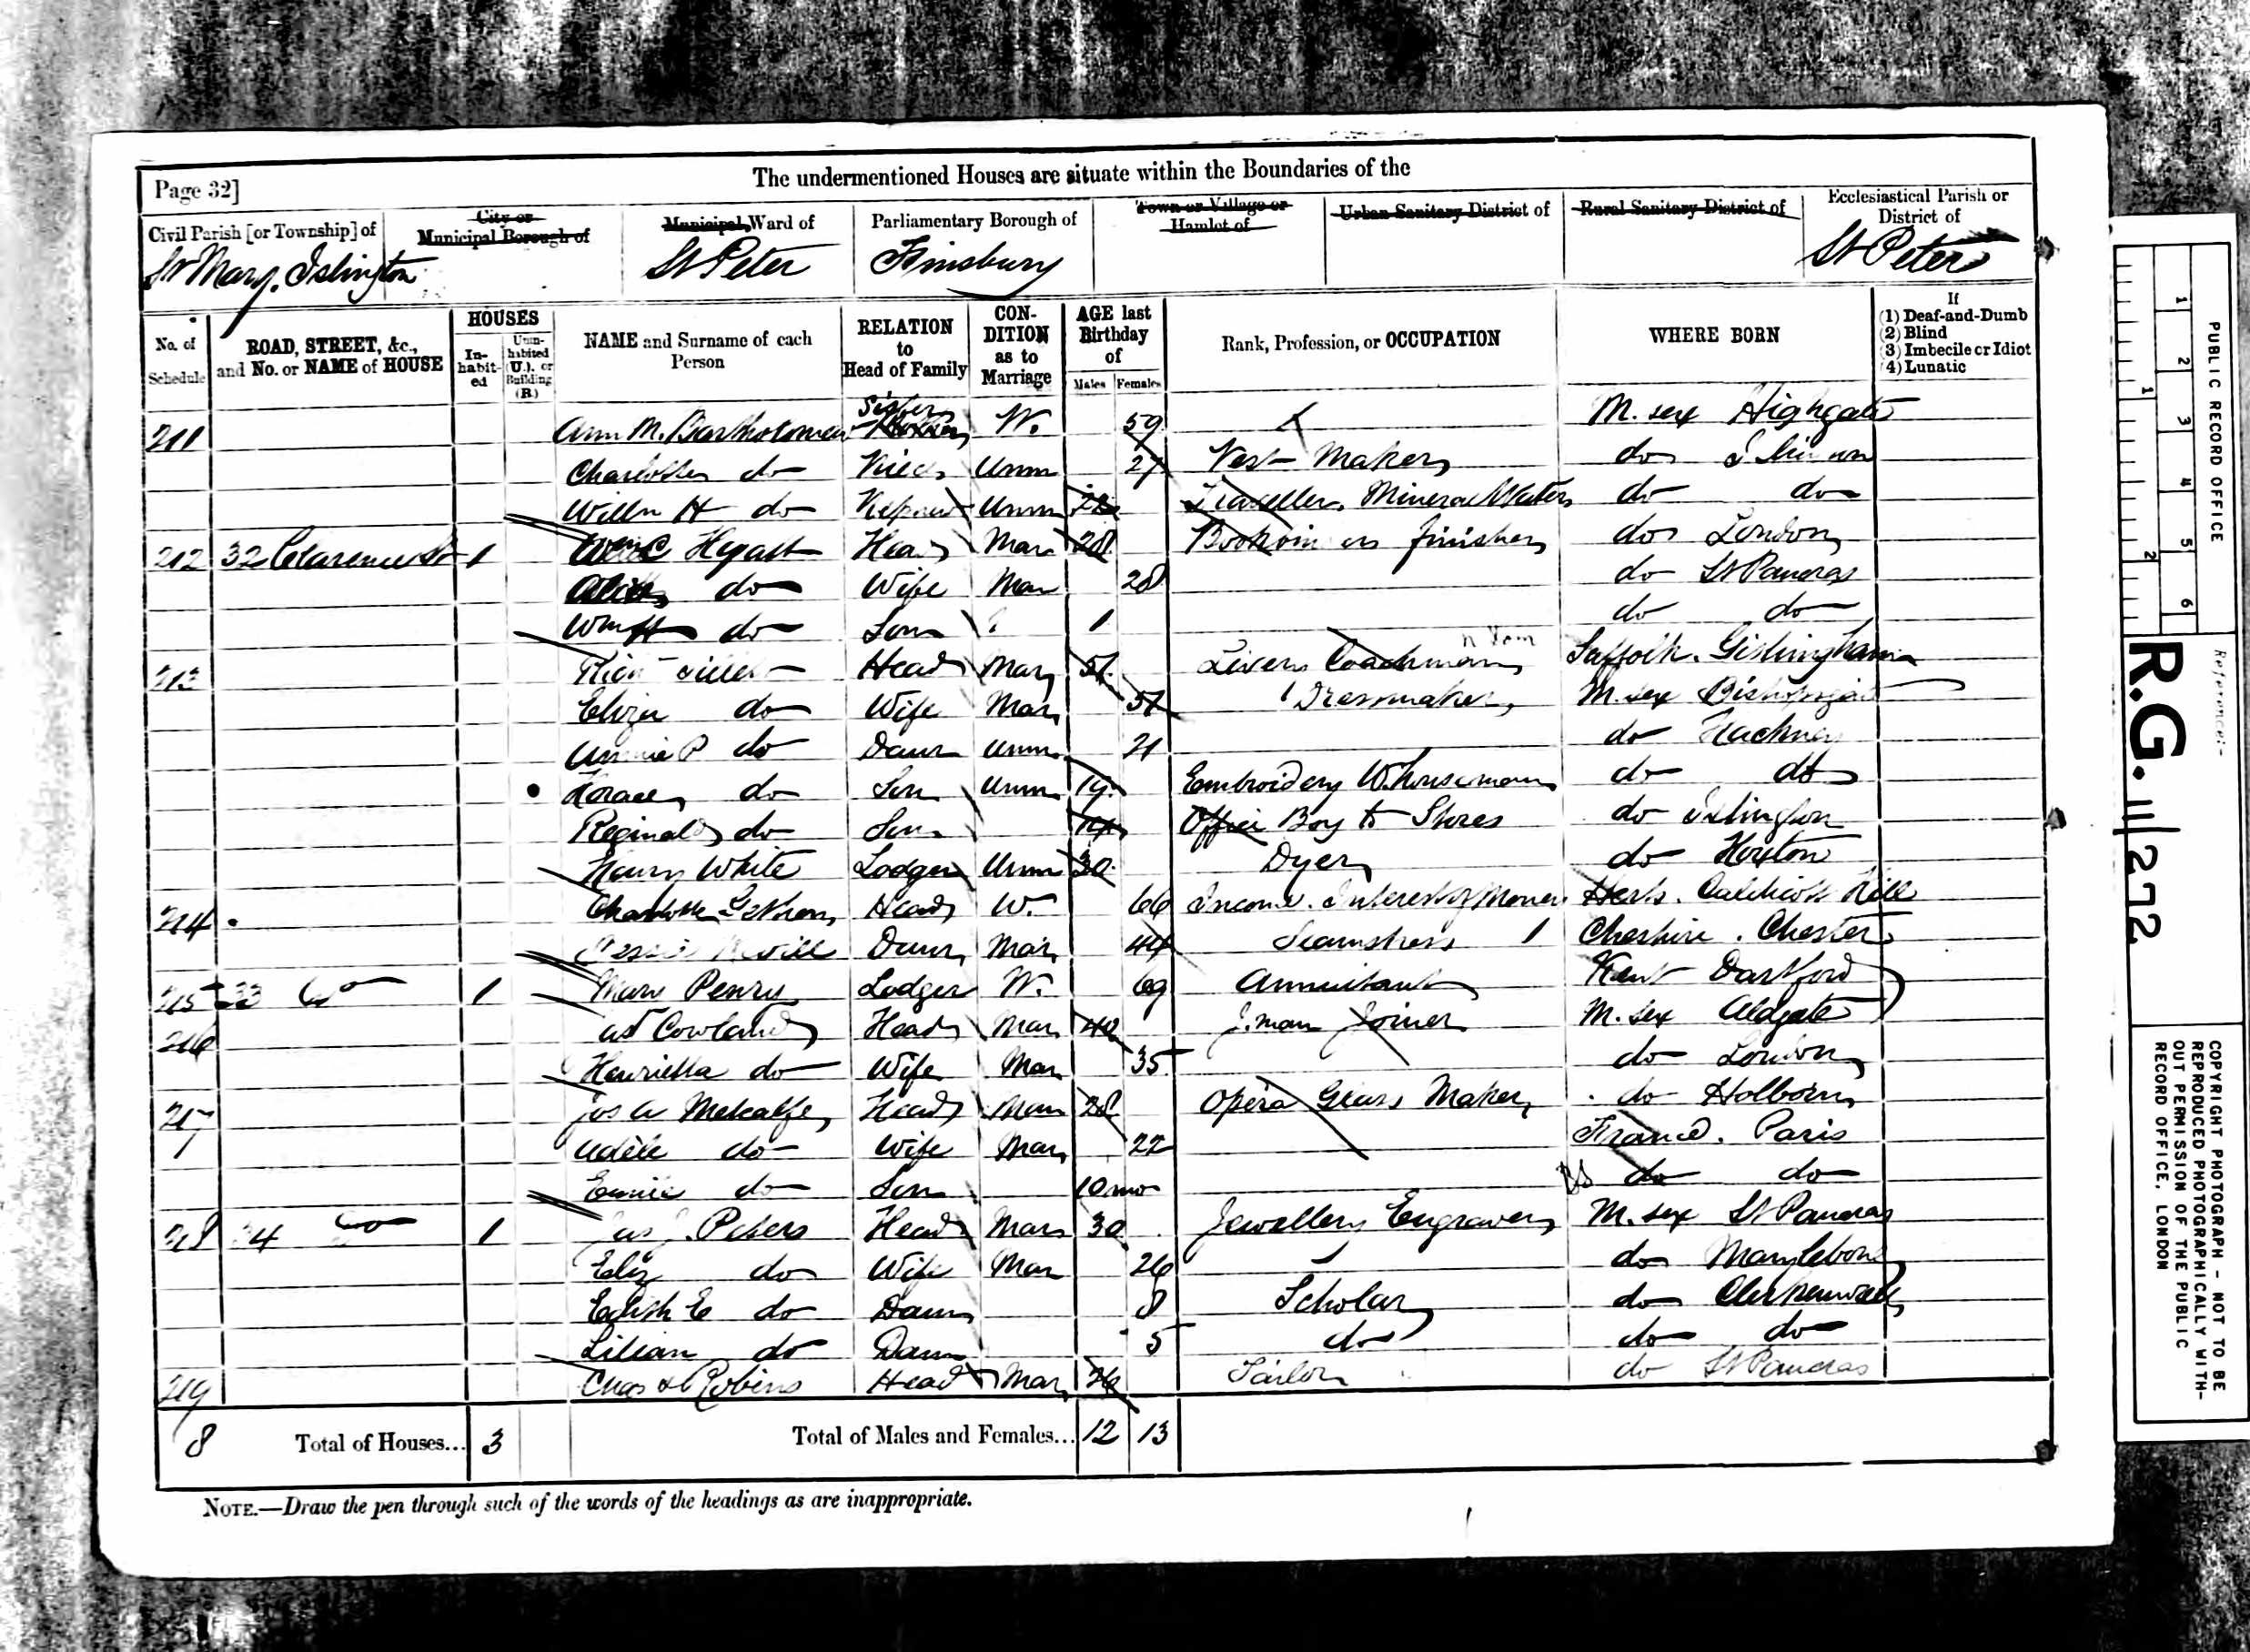 The undermentioned Houses are situate within the Boundaries of the
Page 32]
Civil Parish [or Township] of
City or Municipal Borough of
Municipal Ward of
Parliamentary Borough of
Town or Village or Hamlet of
Urban Sanitary District of
Rural Sanitary District of
Ecclesiastical Parish or District of
St Mary. Islington
St Peter
Finsbury
St Peter
No. of Schedule
ROAD, STREET, &c., and No. or NAME of HOUSE
HOUSES
In-habit-ed
Unin-habited (U.), or Building (B.)
NAME and Surname of each Person
RELATION to Head of Family
CON-DITION as to Marriage
AGE last Birthday of
Males
Females
Rank, Profession, or OCCUPATION
WHERE BORN
If
(1) Deaf-and-Dumb
(2) Blind
(3) Imbecile or Idiot
(4) Lunatic
211 Ann M. Bartholomew Sister W. 59 M. sex Highgate
Charlotte do Niece Unm 27 Vest Maker do
Willm H do Nephew Unm 22 Traveller Mineral Waters do do
212 32 Clarence St 1 Hyatt Head Mar 28 finisher do London
do Wife Mar 28 do St Pancras
Wm H do Son 1 do do
213 Head Mar 51 Livery Coachman Suffolk. Gislingham
Eliza do Wife Mar 51 Dressmaker M. sex Bishopsgate
Annie P do Daur Unm 21 do Hackney
Horace do Son Unm 19 Embroidery W.houseman do do
Reginald do Son 14 Office Boy to Stores do Islington
Harry White Lodger Unm 30 Dyer do Hoxton
214 Charlotte Head W. 66 Income. Interest of Money Herts. Hill
Daur Mar 44 Seamstress Cheshire. Chester
215 33 do 1 Mary Penry Lodger W. 69 Annuitant Kent Dartford
216 Cowland Head Mar 40 J.man Joiner M. sex Aldgate
Henrietta do Wife Mar 35 do London
217 Jos A Metcalfe Head Mar 28 Opera Glass Maker do Holborn
Adèle do Wife Mar 22 France. Paris
Emile do Son 10 mo BS do do
218 34 do 1 Jas J. Peters Head Mar 30 Jewellery Engraver M. sex St Pancras
Eliz do Wife Mar 26 do Marylebone
Edith E do Daur 8 Scholar do Clerkenwell
Lilian do Daur 5 do do do
219 Chas Robins Head Mar 26 Tailor do St Pancras
8 Total of Houses... 3 Total of Males and Females... 12 13
NOTE.—Draw the pen through such of the words of the headings as are inappropriate.
PUBLIC RECORD OFFICE
1 2 3 4 5 6
1 2
Reference:-
R.G. 11/272
COPYRIGHT PHOTOGRAPH - NOT TO BE
REPRODUCED PHOTOGRAPHICALLY WITH-
OUT PERMISSION OF THE PUBLIC
RECORD OFFICE, LONDON